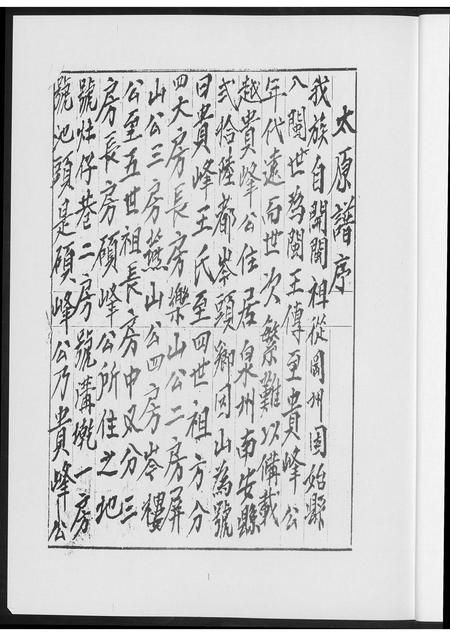 太原譜序
我族自開閩祖從固州固始縣
入閩世為閩王傳至貴峰公
年代遠而世次繁難以備載
越貴峰公住居泉州南安縣
弍拾陸都岑頭鄉同山為號
曰貴峰王氏至四世祖方分
四大房長房樂山公二房屏
山公三房燕山公四房岑樓
公至五世祖長房中又分三
房長房碩峰公所住之地
號灶仔巷二房號溝墘一房
號池頭是碩峰公乃貴峰公